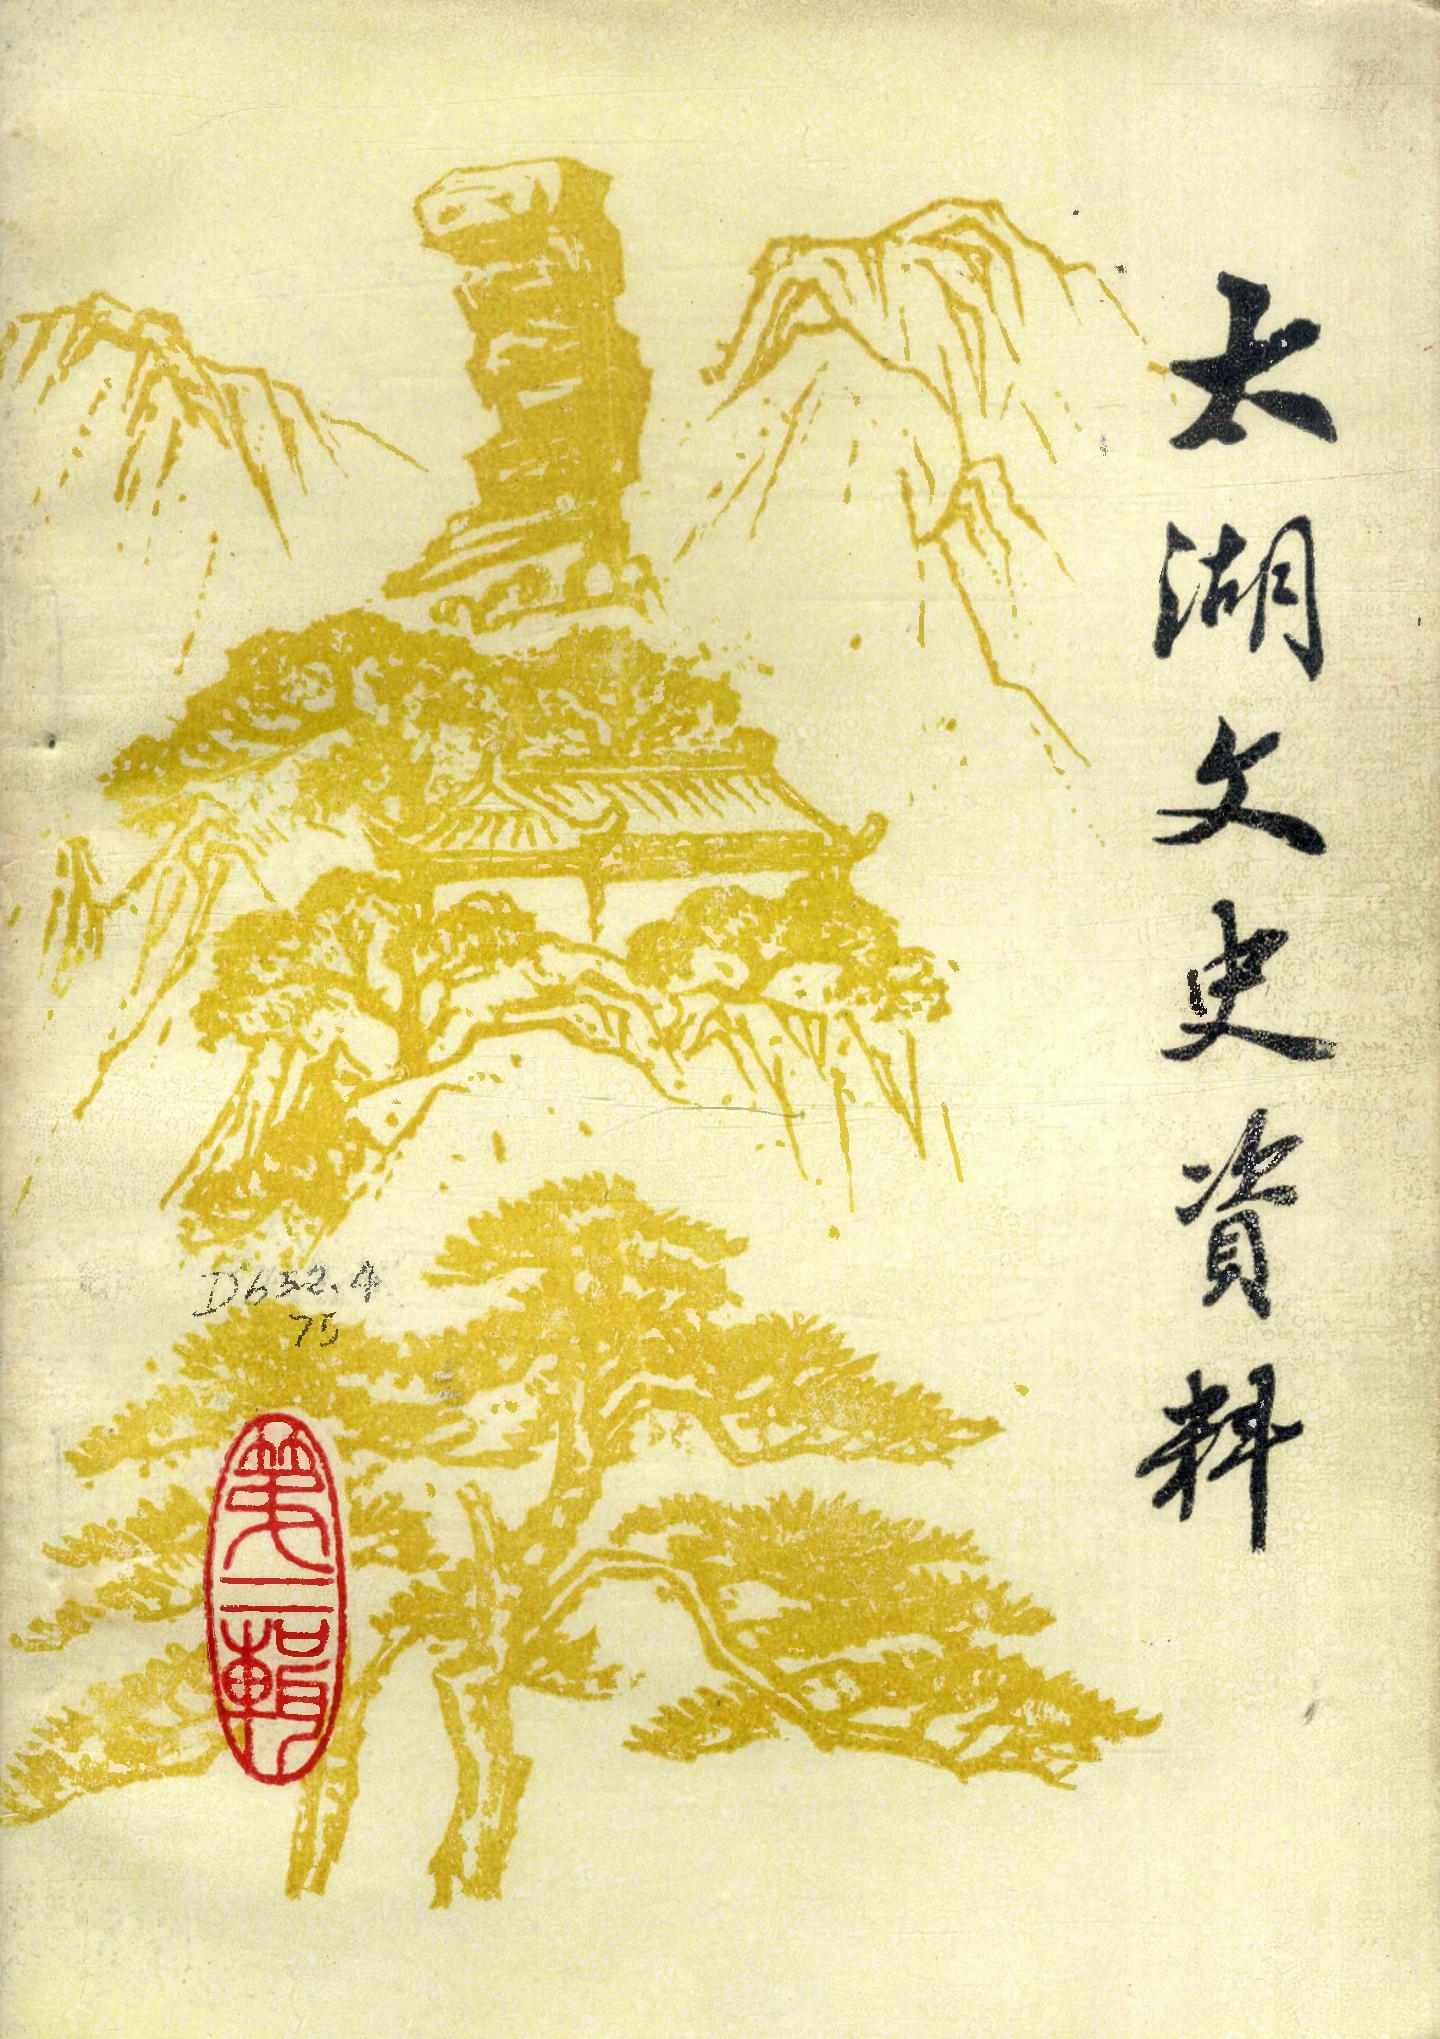 太湖文史資料
D652.4
75
第二輯